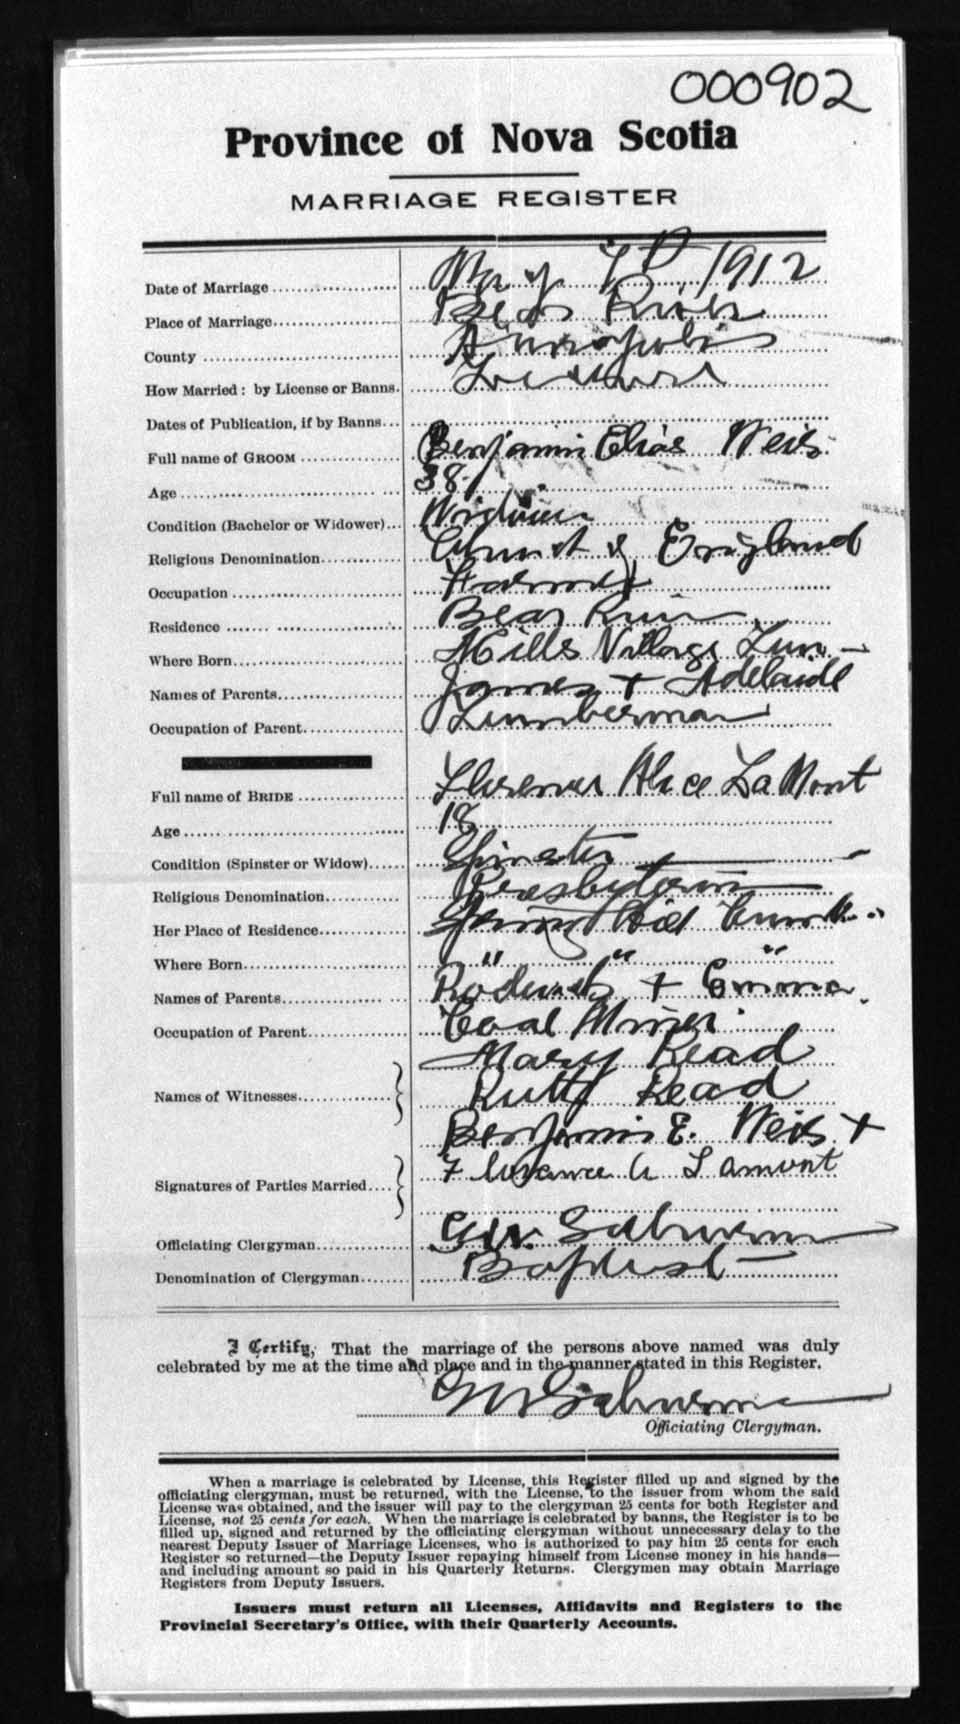 000902
Province of Nova Scotia
MARRIAGE REGISTER
Date of Marriage May 7th 1912
Place of Marriage Bear River
County Annapolis
How Married: by License or Banns. License
Dates of Publication, if by Banns
Full name of GROOM Benjamin Elias Weis
Age 38
Condition (Bachelor or Widower) Widower
Religious Denomination Church of England
Occupation
Residence Bear River
Where Born Mills Village Lun
Names of Parents James + Adelaide
Occupation of Parent Lumberman
Full name of BRIDE Florence Alice La Mont
Age 18
Condition (Spinster or Widow) Spinster
Religious Denomination Presbyterian
Her Place of Residence Spring Hill
Where Born " " "
Names of Parents Roderick + Emma
Occupation of Parent Coal Miner
Mary Read
Names of Witnesses Ruth Read
Benjamin E. Weis +
Signatures of Parties Married Florence A Lamont
Officiating Clergyman
Denomination of Clergyman Baptist
I Certify, That the marriage of the persons above named was duly
celebrated by me at the time and place and in the manner stated in this Register.
Officiating Clergyman.
When a marriage is celebrated by License, this Register filled up and signed by the
officiating clergyman, must be returned, with the License, to the issuer from whom the said
License was obtained, and the issuer will pay to the clergyman 25 cents for both Register and
License, not 25 cents for each. When the marriage is celebrated by banns, the Register is to be
filled up, signed and returned by the officiating clergyman without unnecessary delay to the
nearest Deputy Issuer of Marriage Licenses, who is authorized to pay him 25 cents for each
Register so returned—the Deputy Issuer repaying himself from License money in his hands—
and including amount so paid in his Quarterly Returns. Clergymen may obtain Marriage
Registers from Deputy Issuers.
Issuers must return all Licenses, Affidavits and Registers to the
Provincial Secretary's Office, with their Quarterly Accounts.